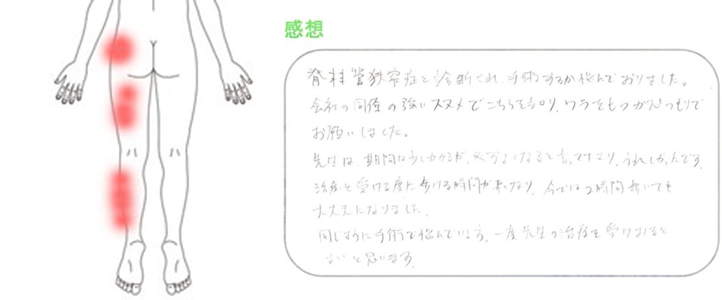 感想
脊柱管狭窄症と診断され、手術するか悩んでおりました。
会社の同僚の強いススメでこちらを知り、ワラをもつかむつもりで
お願いしました。
先生は期間は少しかかるが、必ず良くなると言って下さり、うれしかったです。
治療を受ける度に歩ける時間が長くなり、今では2時間歩いても
大丈夫になりました。
同じように手術で悩んでいる方、一度先生の治療を受けてみると
よいと思います。